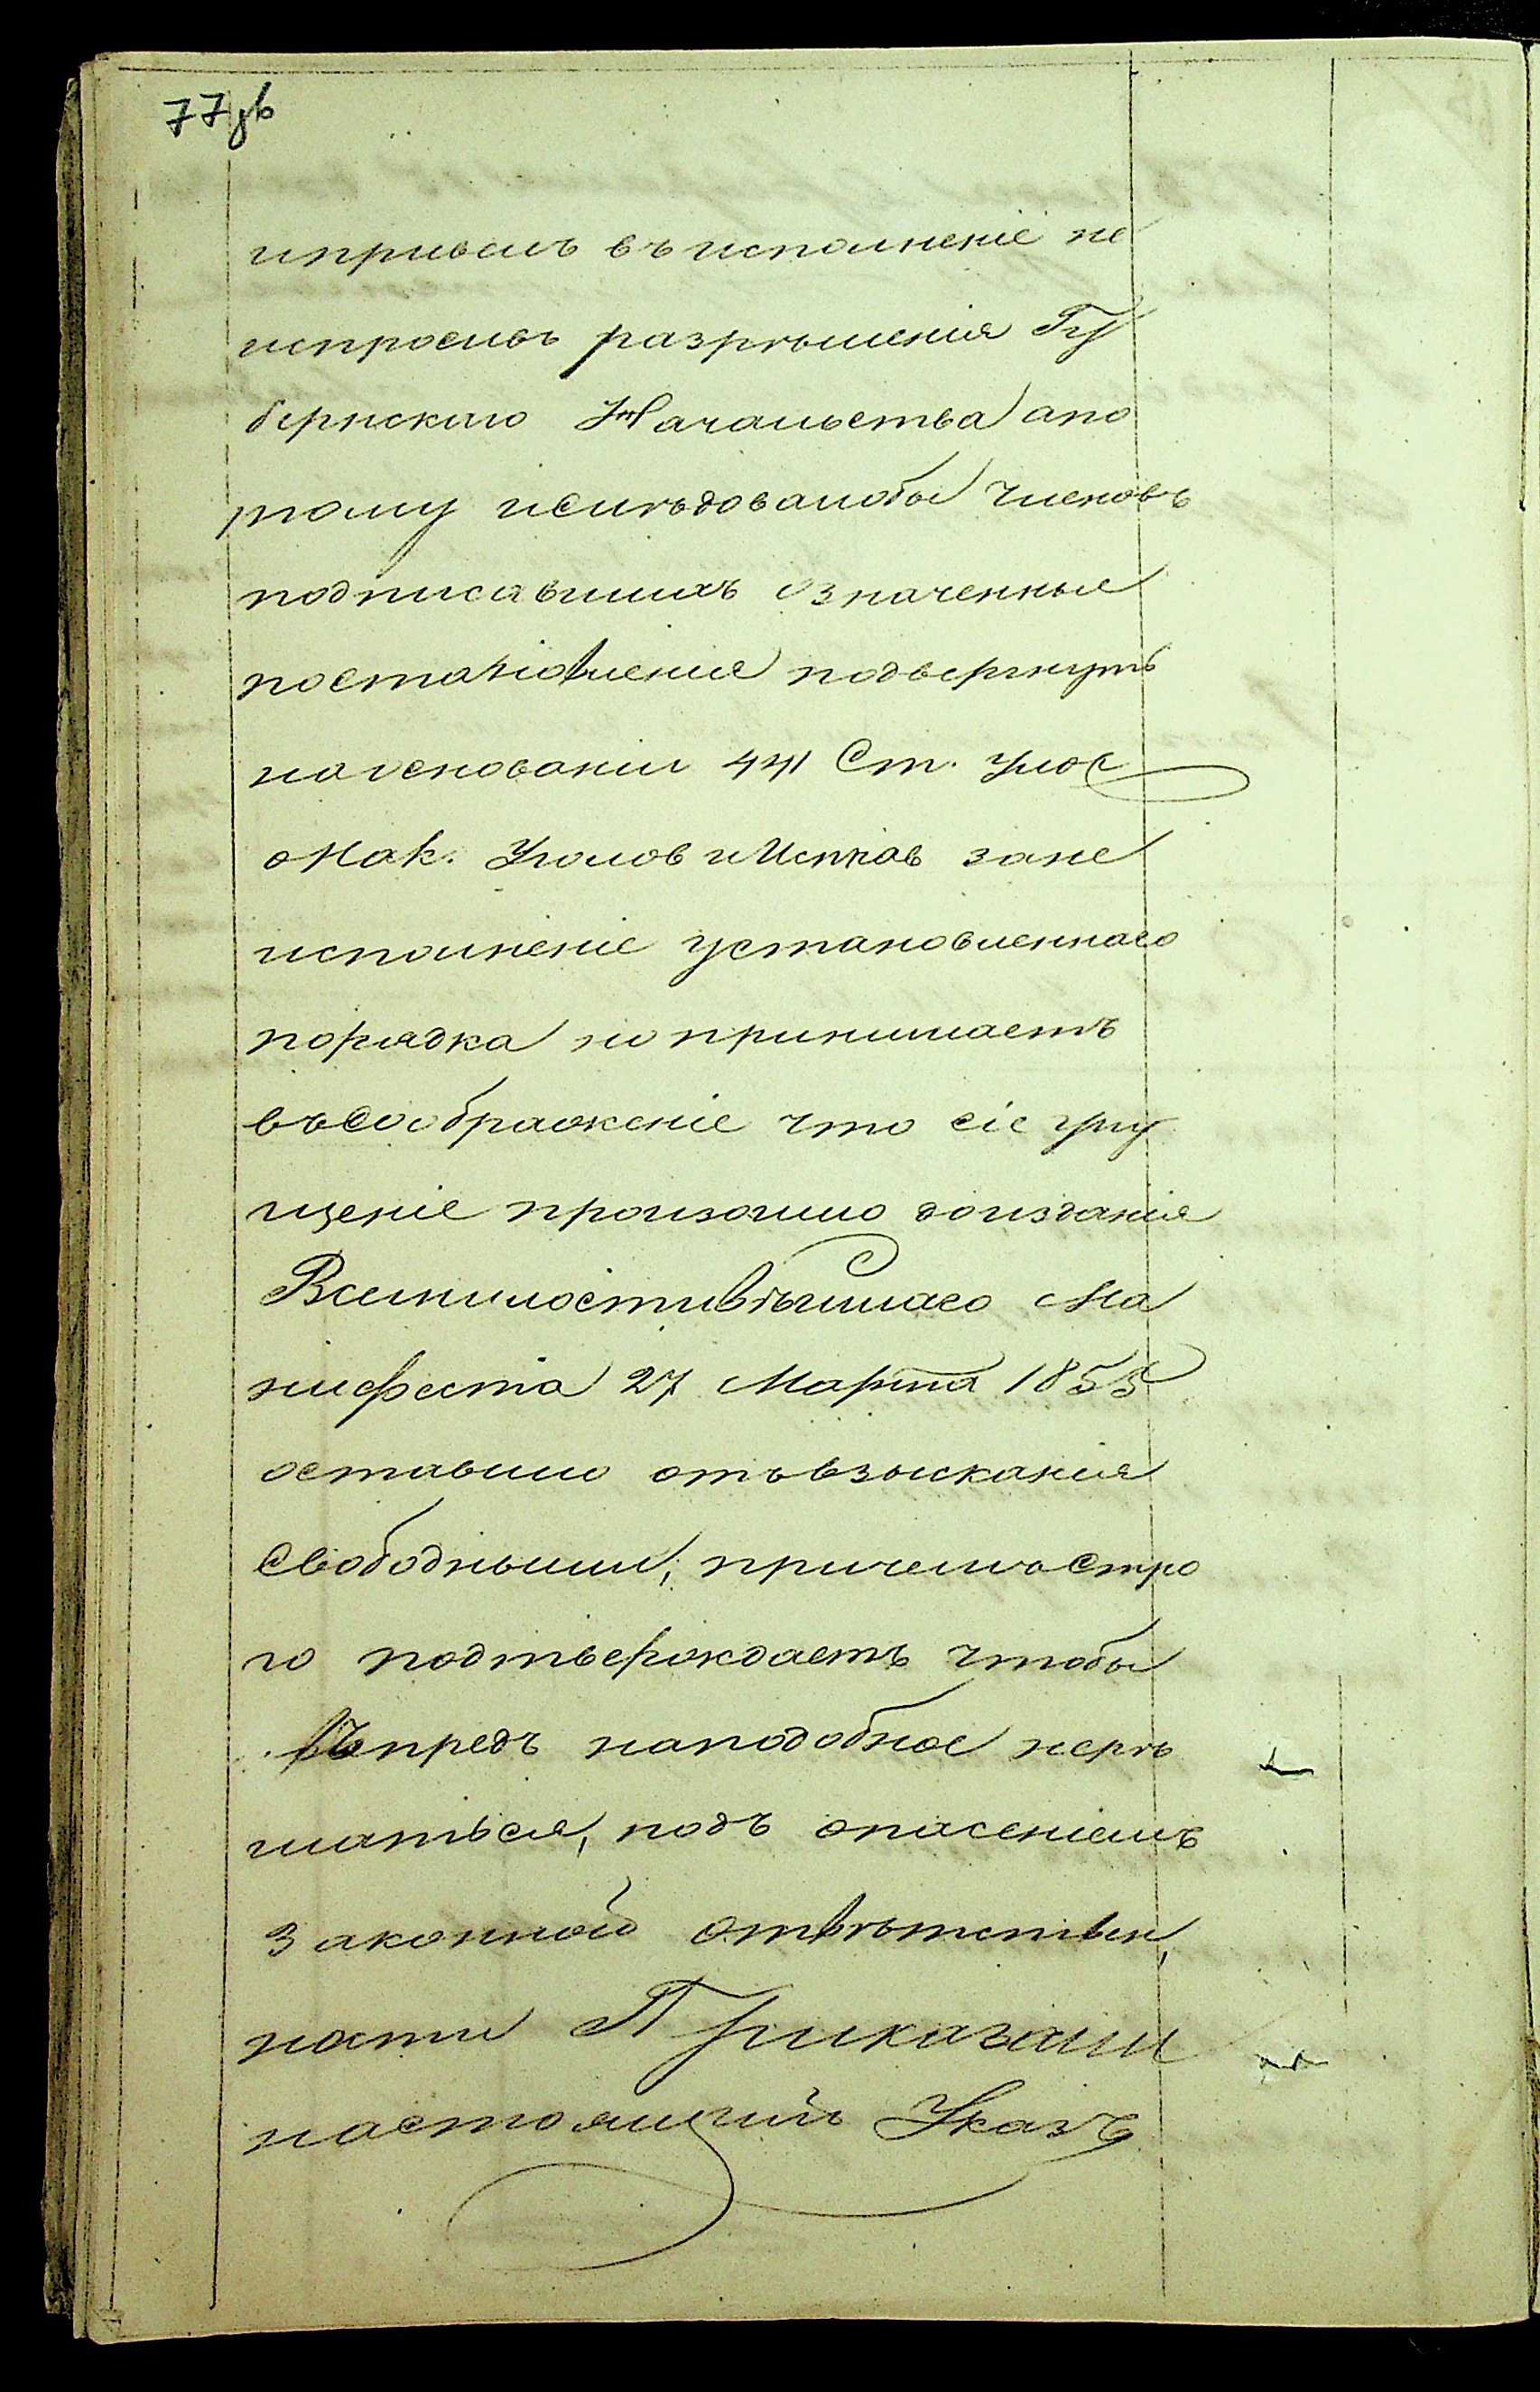 77 зв
и привелъ въ исполненіе не
испросивъ разрѣшенія Гу
бернскаго Начальства а по
тому и слѣдовалобы членовъ
подписавшихъ означенные
постановленія подвергнуть
на основаніи 441 Ст. Улож
о Нак. Уголов и Исправ за не
исполненіе установленнаго
порядка но принимаетъ
въ соображеніе что сіе упу
щеніе произошло до изданія
Всемилостивѣйшаго Ма
нифеста 27 Марта 1855
оставило отъ взысканія
свободными, причемъ стро
го подтверждаетъ чтобы
впредь на подобное не рѣ
шаться, подъ опасеніемъ
законной отвѣтствен,
ности Приказали
настоящій Указъ